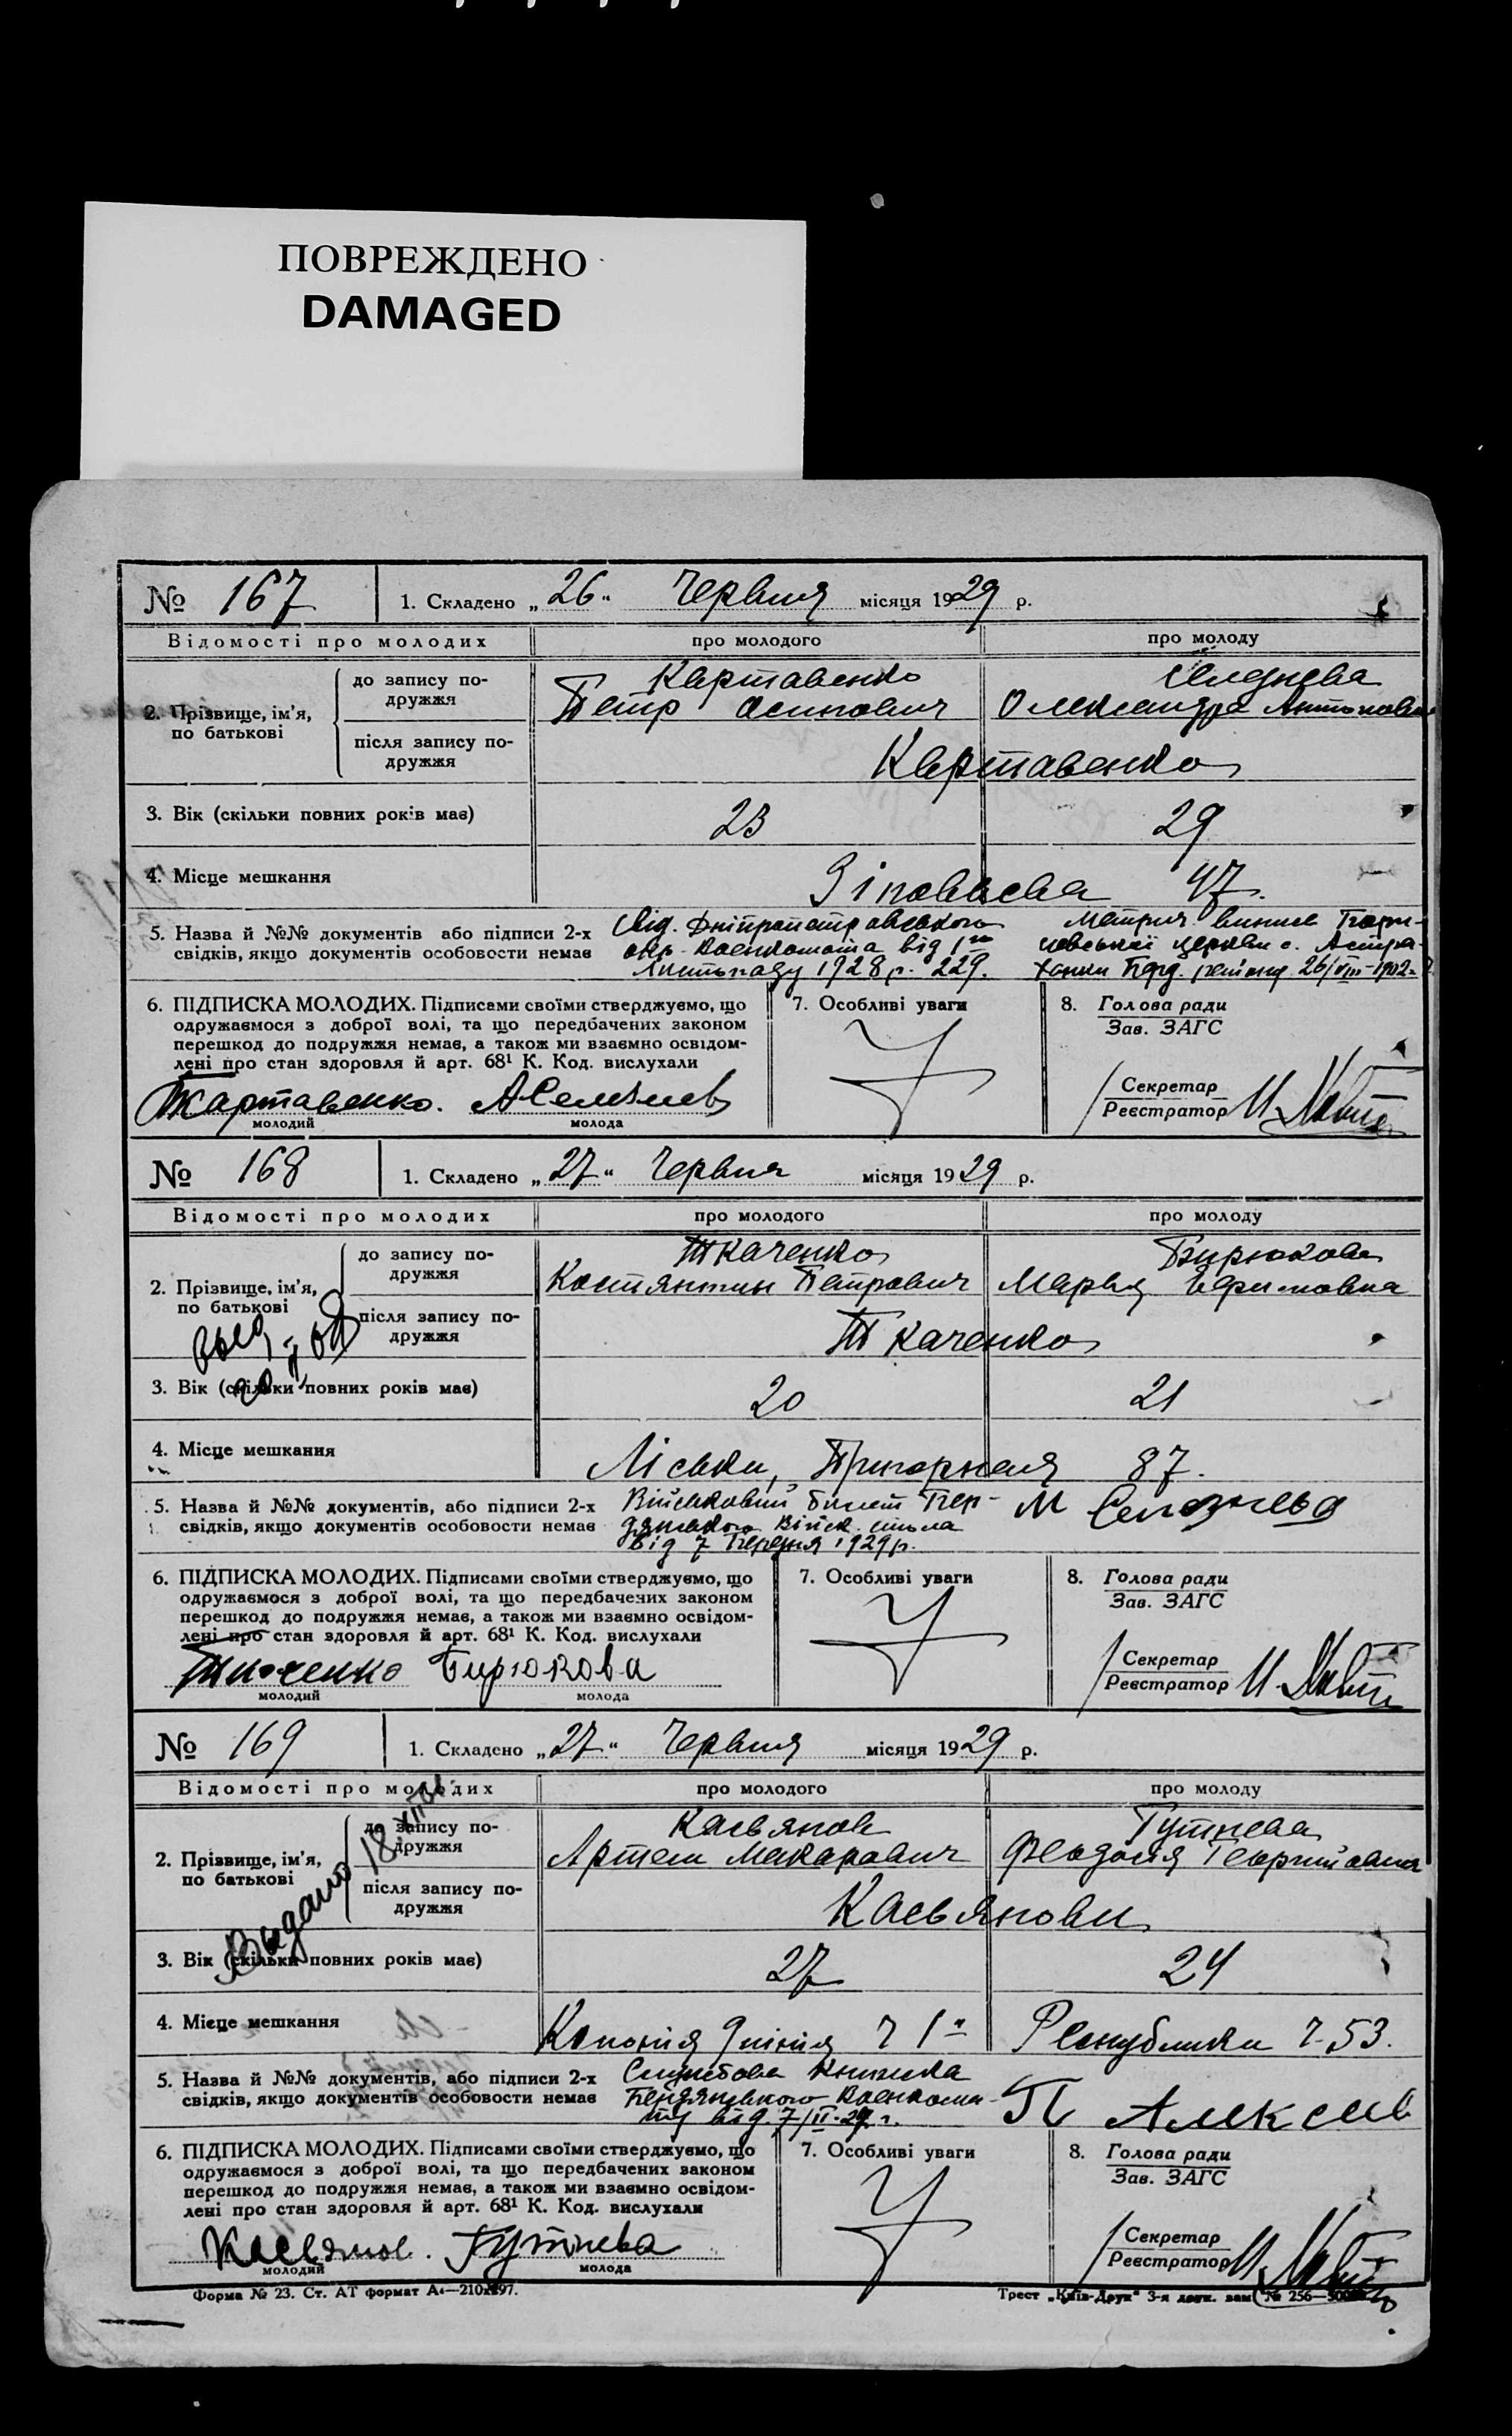 ПОВРЕЖДЕНО
DAMAGED
№ 167
1. Складено „26“ Червня місяця 1929 р.
Відомості про молодих
про молодого
про молоду
2. Прізвище, ім’я, по батькові
до запису подружжя
Картавенко
Петр Осипович
Олександра Антоновна
після запису подружжя
Картавенко
3. Вік (скільки повних років має)
23
29
4. Місце мешкання
47.
5. Назва й №№ документів або підписи 2-х
свідків, якщо документів особовости немає
від 1го
Листопаду 1928 р. 229.
церкви с.
26/VIII-1902
6. ПІДПИСКА МОЛОДИХ. Підписами своїми стверджуємо, що
одружаємося з доброї волі, та що передбачених законом
перешкод до подружжя немає, а також ми взаємно освідом-
лені про стан здоровля й арт. 68¹ К. Код. вислухали
Картавенко.
молодий
молода
7. Особливі уваги
8. Голова ради
Зав. ЗАГС
Секретар
Реєстратор
№ 168
1. Складено „27“ Червня місяця 1929 р.
Відомості про молодих
про молодого
про молоду
2. Прізвище, ім’я, по батькові
до запису подружжя
Ткаченко
Костянтин Петрович
Бирюкова
Марья Ефимовна
після запису подружжя
Ткаченко
3. Вік (скільки повних років має)
20
21
4. Місце мешкання
Ліски, 87.
5. Назва й №№ документів, або підписи 2-х
свідків, якщо документів особовости немає
Військовий билет Бер-
дянського Війск. стола
від 7 Березня 1929 р.
М Селезнева
6. ПІДПИСКА МОЛОДИХ. Підписами своїми стверджуємо, що
одружаємося з доброї волі, та що передбачених законом
перешкод до подружжя немає, а також ми взаємно освідом-
лені про стан здоровля й арт. 68¹ К. Код. вислухали
Ткаченко
Бирюкова
молодий
молода
7. Особливі уваги
8. Голова ради
Зав. ЗАГС
Секретар
Реєстратор
№ 169
1. Складено „27“ Червня місяця 1929 р.
Відомості про молодих
про молодого
про молоду
Выдано 18
2. Прізвище, ім’я, по батькові
до запису подружжя
Касьянов
Артем Макарович
Гутнева
Феодосія Георгиевна
після запису подружжя
Касьянови
3. Вік (скільки повних років має)
27
24
4. Місце мешкання
Колонія 9 лінія
Республики 53.
5. Назва й №№ документів, або підписи 2-х
свідків, якщо документів особовости немає
Службова книжка
Бердянського Военкома-
ту від. 7/II-29 г.
П Алексеев
6. ПІДПИСКА МОЛОДИХ. Підписами своїми стверджуємо, що
одружаємося з доброї волі, та що передбачених законом
перешкод до подружжя немає, а також ми взаємно освідом-
лені про стан здоровля й арт. 68¹ К. Код. вислухали
Касьянов.
Гутнева
молодий
молода
7. Особливі уваги
8. Голова ради
Зав. ЗАГС
Секретар
Реєстратор
Форма № 23. Ст. АТ формат А4—210х297.
Трест „Київ-Друк“ 3-я друк. зам. № 256